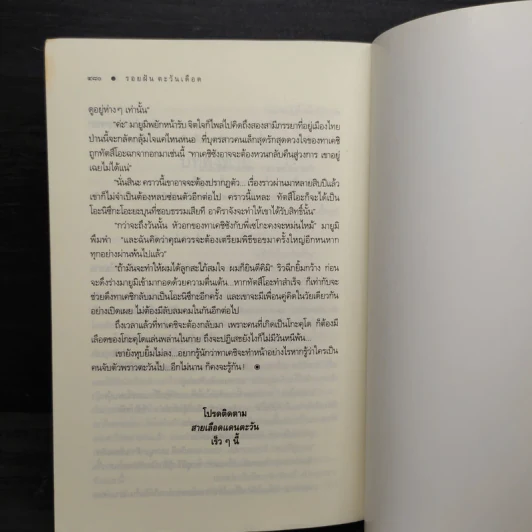 ๑๘๐ ● รอยฝัน ตะวันเดือด
ดูอยู่ห่างๆ เท่านั้น"
"ค่ะ" มายูมิพยักหน้ารับ จิตใจก็ไพล่ไปคิดถึงสองสามีภรรยาที่อยู่เมืองไทย
ปานนี้จะกลัดกลุ้มใจแค่ไหนหนอ ที่บุตรสาวคนเล็กสุดรักสุดดวงใจของทาเคชิ
ถูกทัตสึโอะฉกจากอกมาเช่นนี้ "ทาเคชิซังอาจจะต้องหวนกลับคืนสู่วงการ เขาอยู่
เฉยไม่ได้แน่"
"นั่นสินะ คราวนี้เขาอาจจะต้องปรากฏตัว...เรื่องราวผ่านมาหลายสิบปีแล้ว
เขาก็ไม่จำเป็นต้องหลบซ่อนตัวอีกต่อไป คราวนี้แหละ ทัตสึโอะก็จะได้เป็น
โอะนิซึกะโอะยะบุนที่ชอบธรรมเสียที อาคิราจังจะทำให้เขาได้รับสิทธิ์นั้น"
"กว่าจะถึงวันนั้น หัวอกของทาเคชิซังกับพี่เซโกะคงจะหม่นไหม้" มายูมิ
พึมพำ "และฉันคิดว่าคุณควรจะต้องเตรียมพิธีขอขมาครั้งใหญ่อีกหนหาก
ทุกอย่างผ่านพ้นไปแล้ว"
"ถ้ามันจะทำให้ผมได้ลูกสะใภ้สมใจ ผมก็ยินดีคิมิ" ริวฉีกยิ้มกว้าง ก่อน
จะดึงร่างมายูมิเข้ามากอดด้วยความตื่นเต้น...หากทัตสึโอะทำสำเร็จ ก็เท่ากับจะ
ช่วยดึงทาเคชิกลับมาเป็นโอะนิซึกะอีกครั้ง และเขาจะมีเพื่อนคู่คิดในวัยเดียวกัน
อย่างเปิดเผย ไม่ต้องมีลับลมคมในกันอีกต่อไป
ถึงเวลาแล้วที่ทาเคชิจะต้องกลับมา เพราะคนที่เกิดเป็นโกะคุโด ก็ต้องมี
เลือดของโกะคุโดแล่นพล่านในกาย ถึงจะปฏิเสธยังไงก็ไม่มีวันหนีพ้น...
เขายังหุบยิ้มไม่ลง...อยากรู้นักว่าทาเคชิจะทำหน้าอย่างไรหากรู้ว่าใครเป็น
คนจับตัวพราวตะวันไป...อีกไม่นาน ก็คงจะรู้กัน! ◉
โปรดติดตาม
สายเลือดแดนตะวัน
เร็ว ๆ นี้